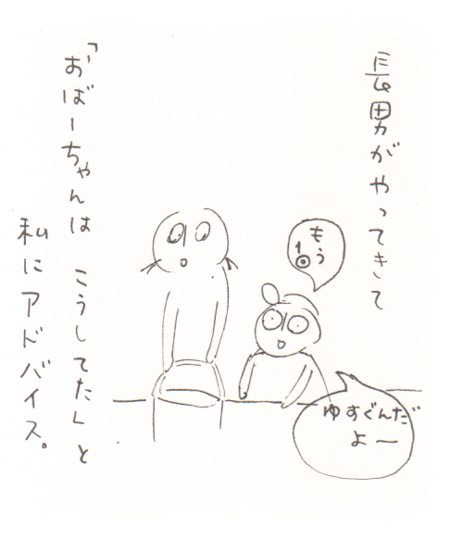 長男がやってきて
もう
1回
ゆすぐんだ
よー
「おばーちゃんは こうしてた」と
私にアドバイス。